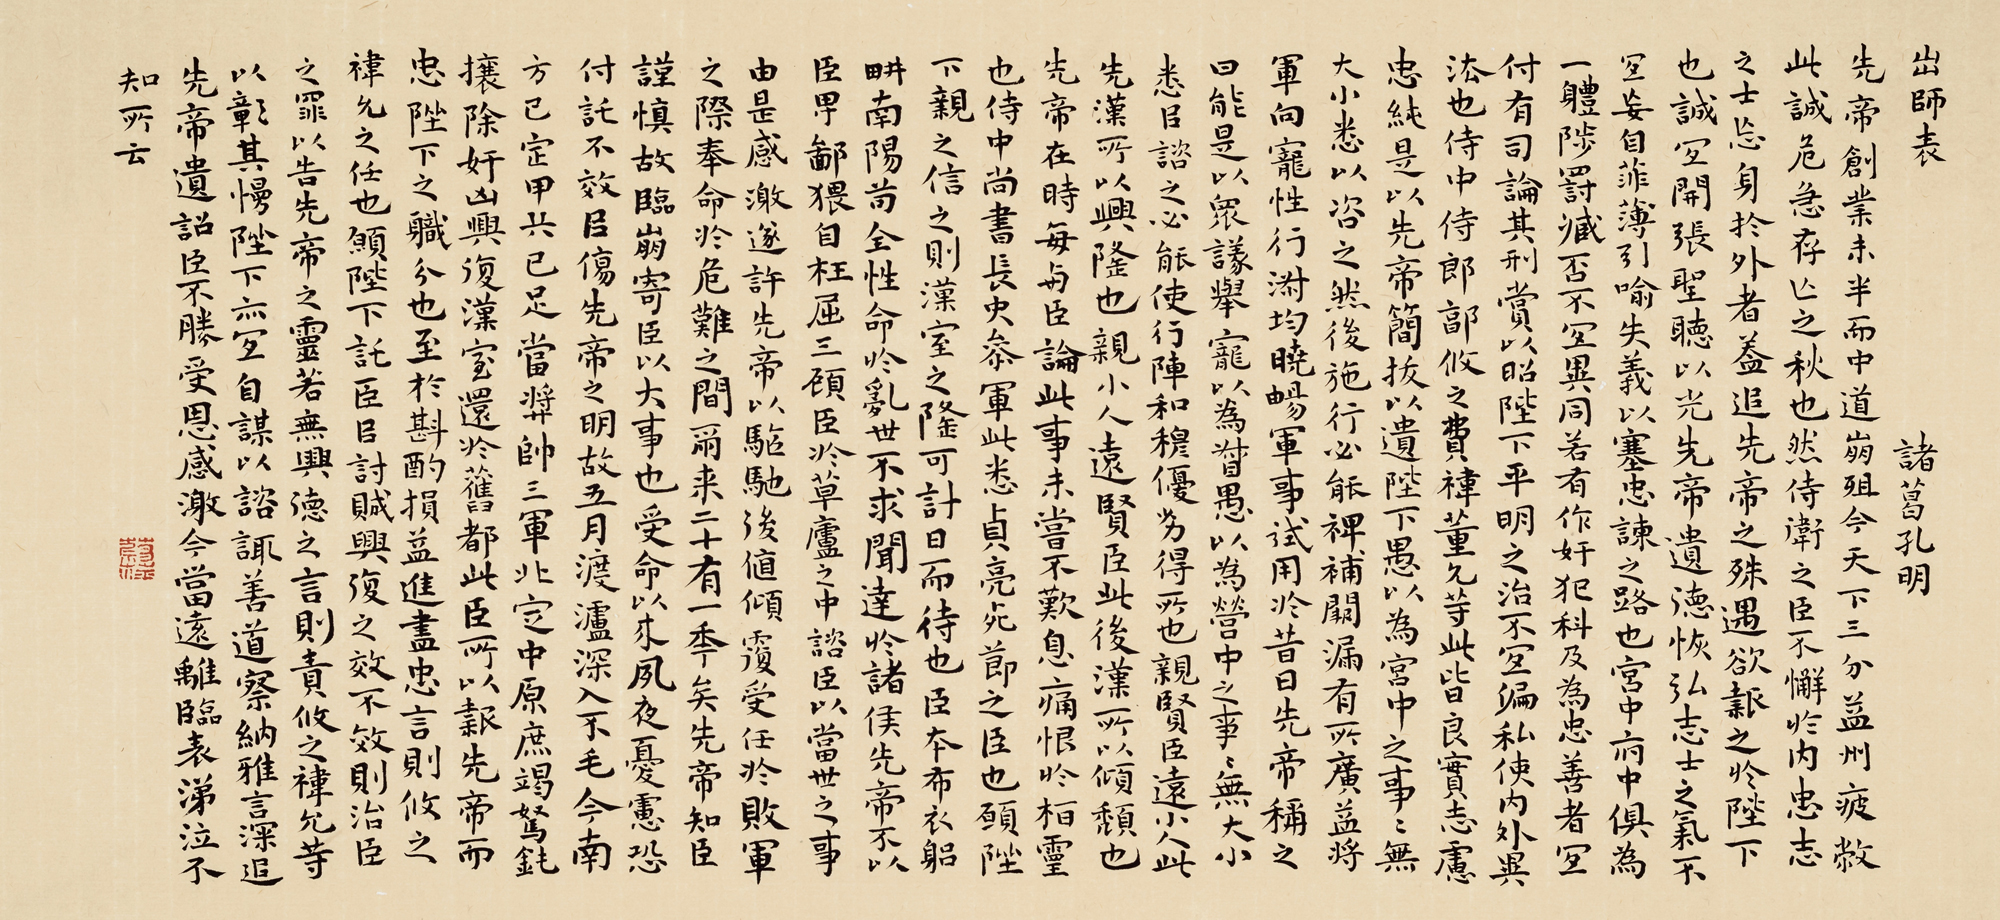 出師表　諸葛孔明
先帝創業未半而中道崩殂今天下三分益州疲敝
此誠危急存亡之秋也然侍衛之臣不懈於内忠志
之士忘身於外者蓋追先帝之殊遇欲報之於陛下
也誠宜開張聖聽以光先帝遺德恢弘志士之氣不
宜妄自菲薄引喻失義以塞忠諫之路也宮中府中俱為
一體陟罰臧否不宜異同若有作奸犯科及為忠善者宜
付有司論其刑賞以昭陛下平明之治不宜偏私使内外異
法也侍中侍郎郭攸之費禕董允等此皆良實志慮
忠純是以先帝簡拔以遺陛下愚以為宮中之事々無
大小悉以咨之然後施行必能裨補闕漏有所廣益將
軍向寵性行淑均曉暢軍事試用於昔日先帝稱之
曰能是以眾議舉寵以為督愚以為營中之事々無大小
悉㠯諮之必能使行陣和穆優劣得所也親賢臣遠小人此
先漢所以興隆也親小人遠賢臣此後漢所以傾頹也
先帝在時每與臣論此事未嘗不歎息痛恨於桓靈
也侍中尚書長史參軍此悉貞亮死節之臣也願陛
下親之信之則漢室之隆可計日而待也臣本布衣躬
耕南陽苟全性命於亂世不求聞達於諸侯先帝不以
臣卑鄙猥自枉屈三顧臣於草廬之中諮臣以當世之事
由是感激遂許先帝以驅馳後值傾覆受任於敗軍
之際奉命於危難之間爾來二十有一年矣先帝知臣
謹慎故臨崩寄臣以大事也受命以來夙夜憂慮恐
付託不效㠯傷先帝之明故五月渡瀘深入不毛今南
方已定甲兵已足當獎帥三軍北定中原庶竭駑鈍
攘除奸凶興復漢室還於舊都此臣所以報先帝而
忠陛下之職分也至於斟酌損益進盡忠言則攸之
禕允之任也願陛下託臣㠯討賊興復之效不效則治臣
之罪以告先帝之靈若無興德之言則責攸之禕允等
以彰其慢陛下亦宜自謀以諮諏善道察納雅言深追
先帝遺詔臣不勝受恩感激今當遠離臨表涕泣不
知所云